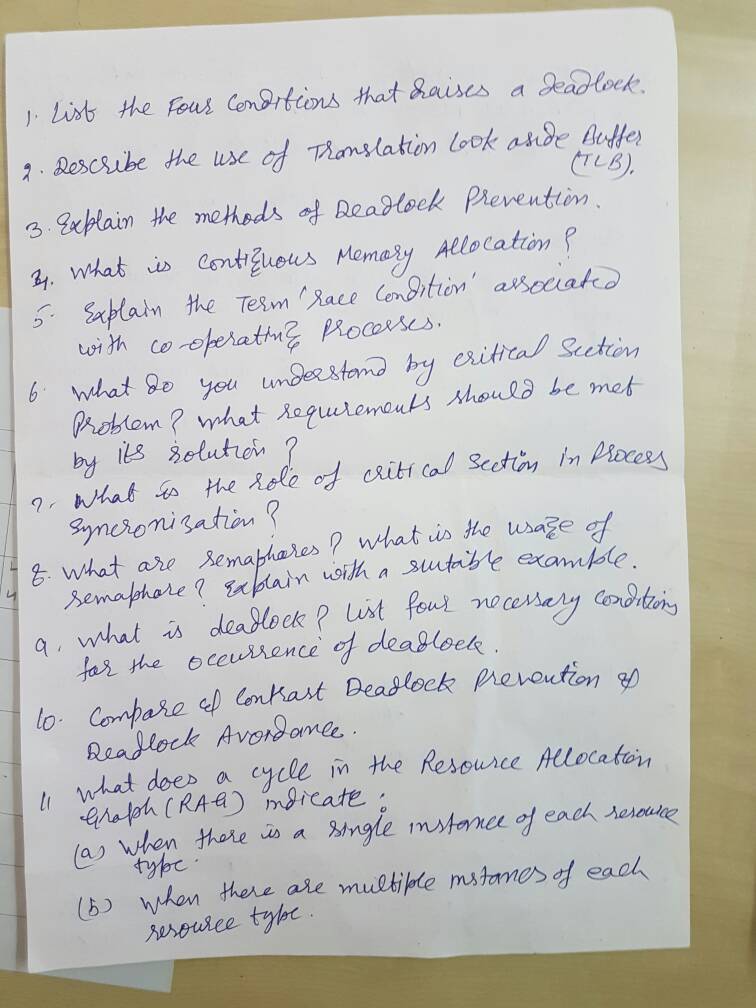 1. List the Four Conditions that raises a deadlock.
2. Describe the use of Translation look aside Buffer
(TLB).
3. Explain the methods of Deadlock Prevention.
4. What is contiguous Memory Allocation?
5. Explain the Term 'race Condition' associated
with co-operating Processes.
6. What do you understand by critical Section
Problem? What requirements should be met
by its solution?
7. What is the role of critical section in Process
Syncronization?
8. What are semaphares? What is the usage of
semaphare? Explain with a suitable example.
9. What is deadlock? List four necessary conditions
for the occurrence of deadlock.
10. Compare & Contrast Deadlock Prevention &
Deadlock Avoidance.
11 What does a cycle in the Resource Allocation
Graph (RAG) indicate:
(a) When there is a single instance of each resource
type.
(b) When there are multiple instances of each
resource type.